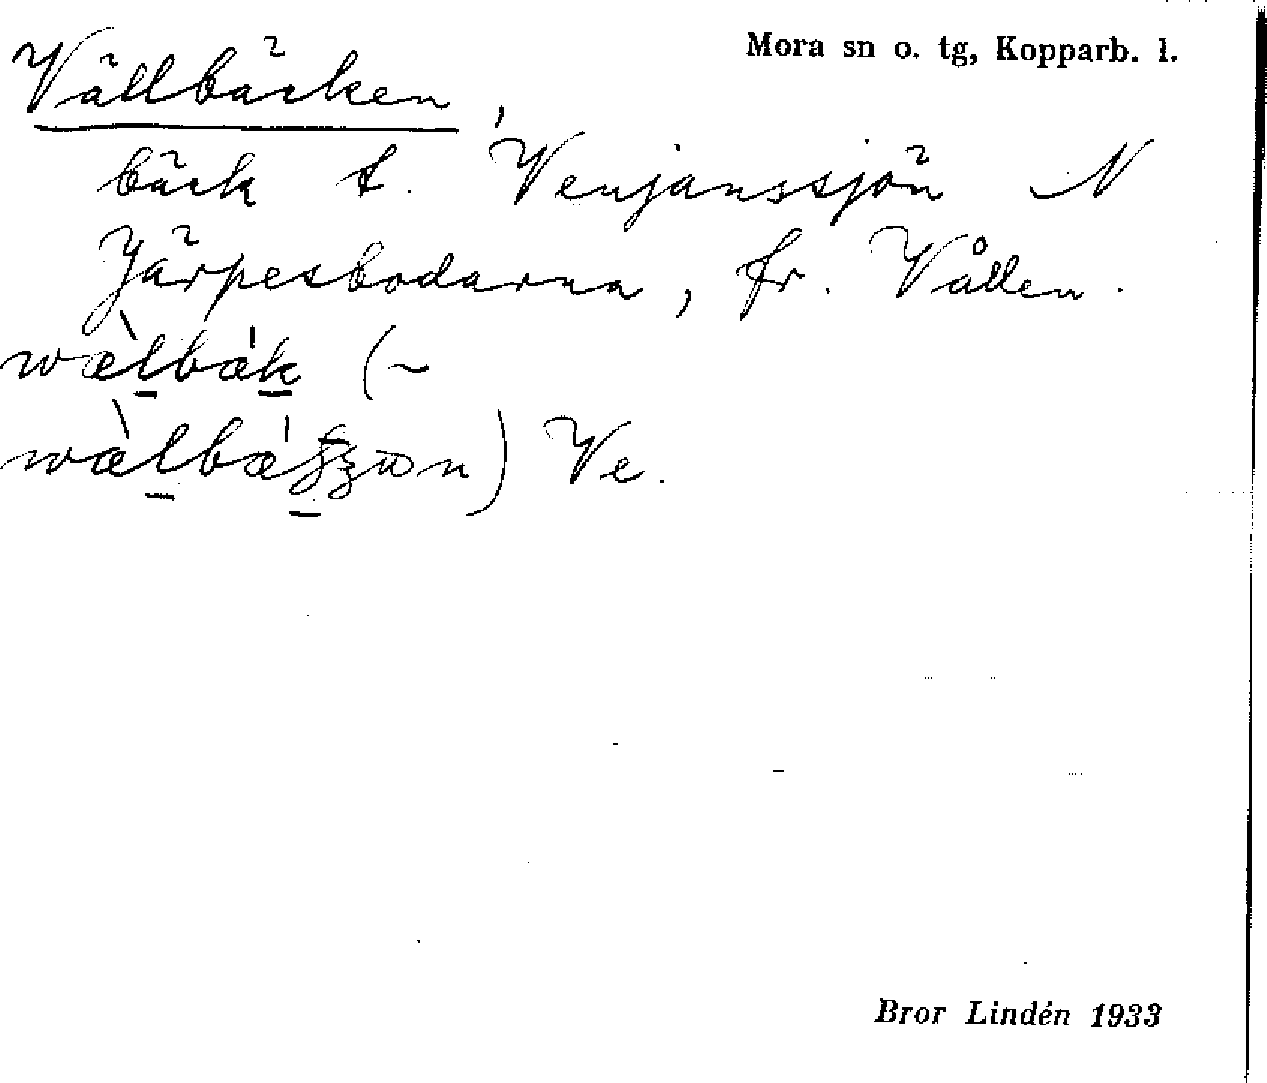 Mora sn o. tg, Kopparb. l.
Vällbäcken,
bäck t. Venjanssjön N
Järpesbodarna, fr. Vållen.
wæ̀lbǽk (~
) Ve.
Bror Lindén 1933